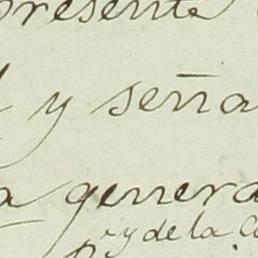 presente
y seña
a genera
y de la